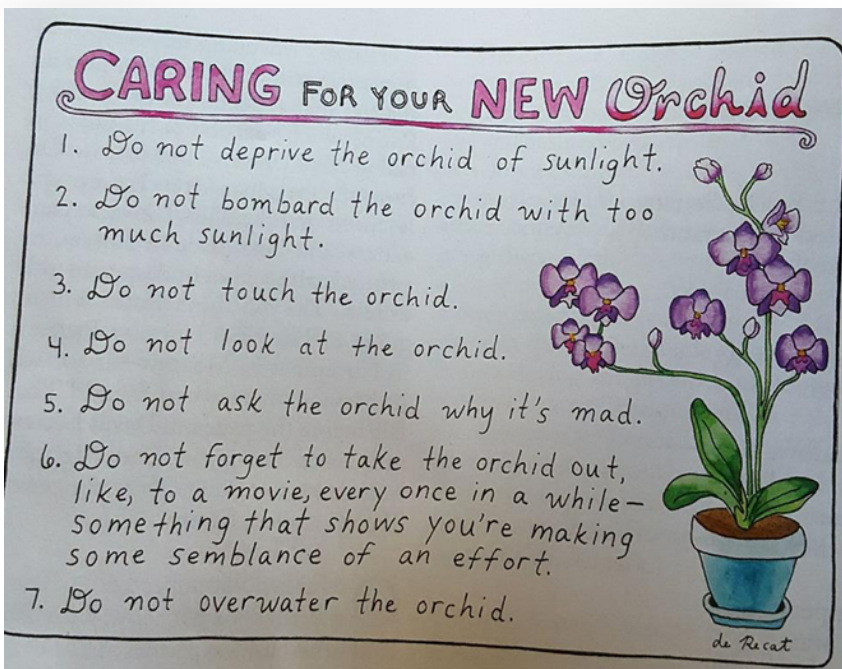 CARING FOR YOUR NEW Orchid
1. Do not deprive the orchid of sunlight.
2. Do not bombard the orchid with too
much sunlight.
3. Do not touch the orchid.
4. Do not look at the orchid.
5. Do not ask the orchid why it's mad.
6. Do not forget to take the orchid out,
like, to a movie, every once in a while—
something that shows you're making
some semblance of an effort.
7. Do not overwater the orchid.
de Recat